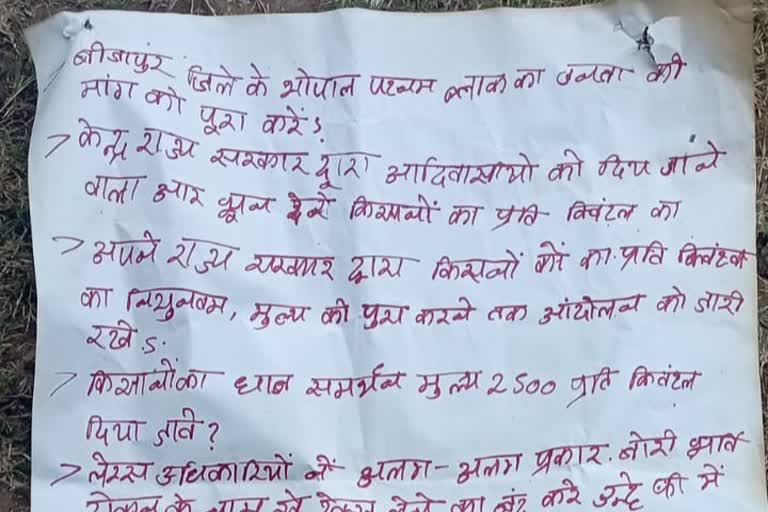 बीजापुर जिले के भोपाल पटनम ब्लाक का जनता की
मांग को पूरा करें ऽ
> केन्द्र राज्य सरकार द्वारा आदिवासीयो को दिए जाने
वाला और देश किसानों का प्रति क्विंटल का
> अपने राज्य सरकार द्वारा किसानों को का. प्रति क्विंटल
का नियुनतम, मुल्य को पुरा करने तक आंदोलन को जारी
रखे. ऽ.
> किसानों का धान समर्थन मुल्य 2500 प्रति किवंटल
दिया जावे ?
> लेम्स अधिकारियों ने अलग-अलग प्रकार. बोरी
के नाम से लेने का बंद करे उन्हे की में